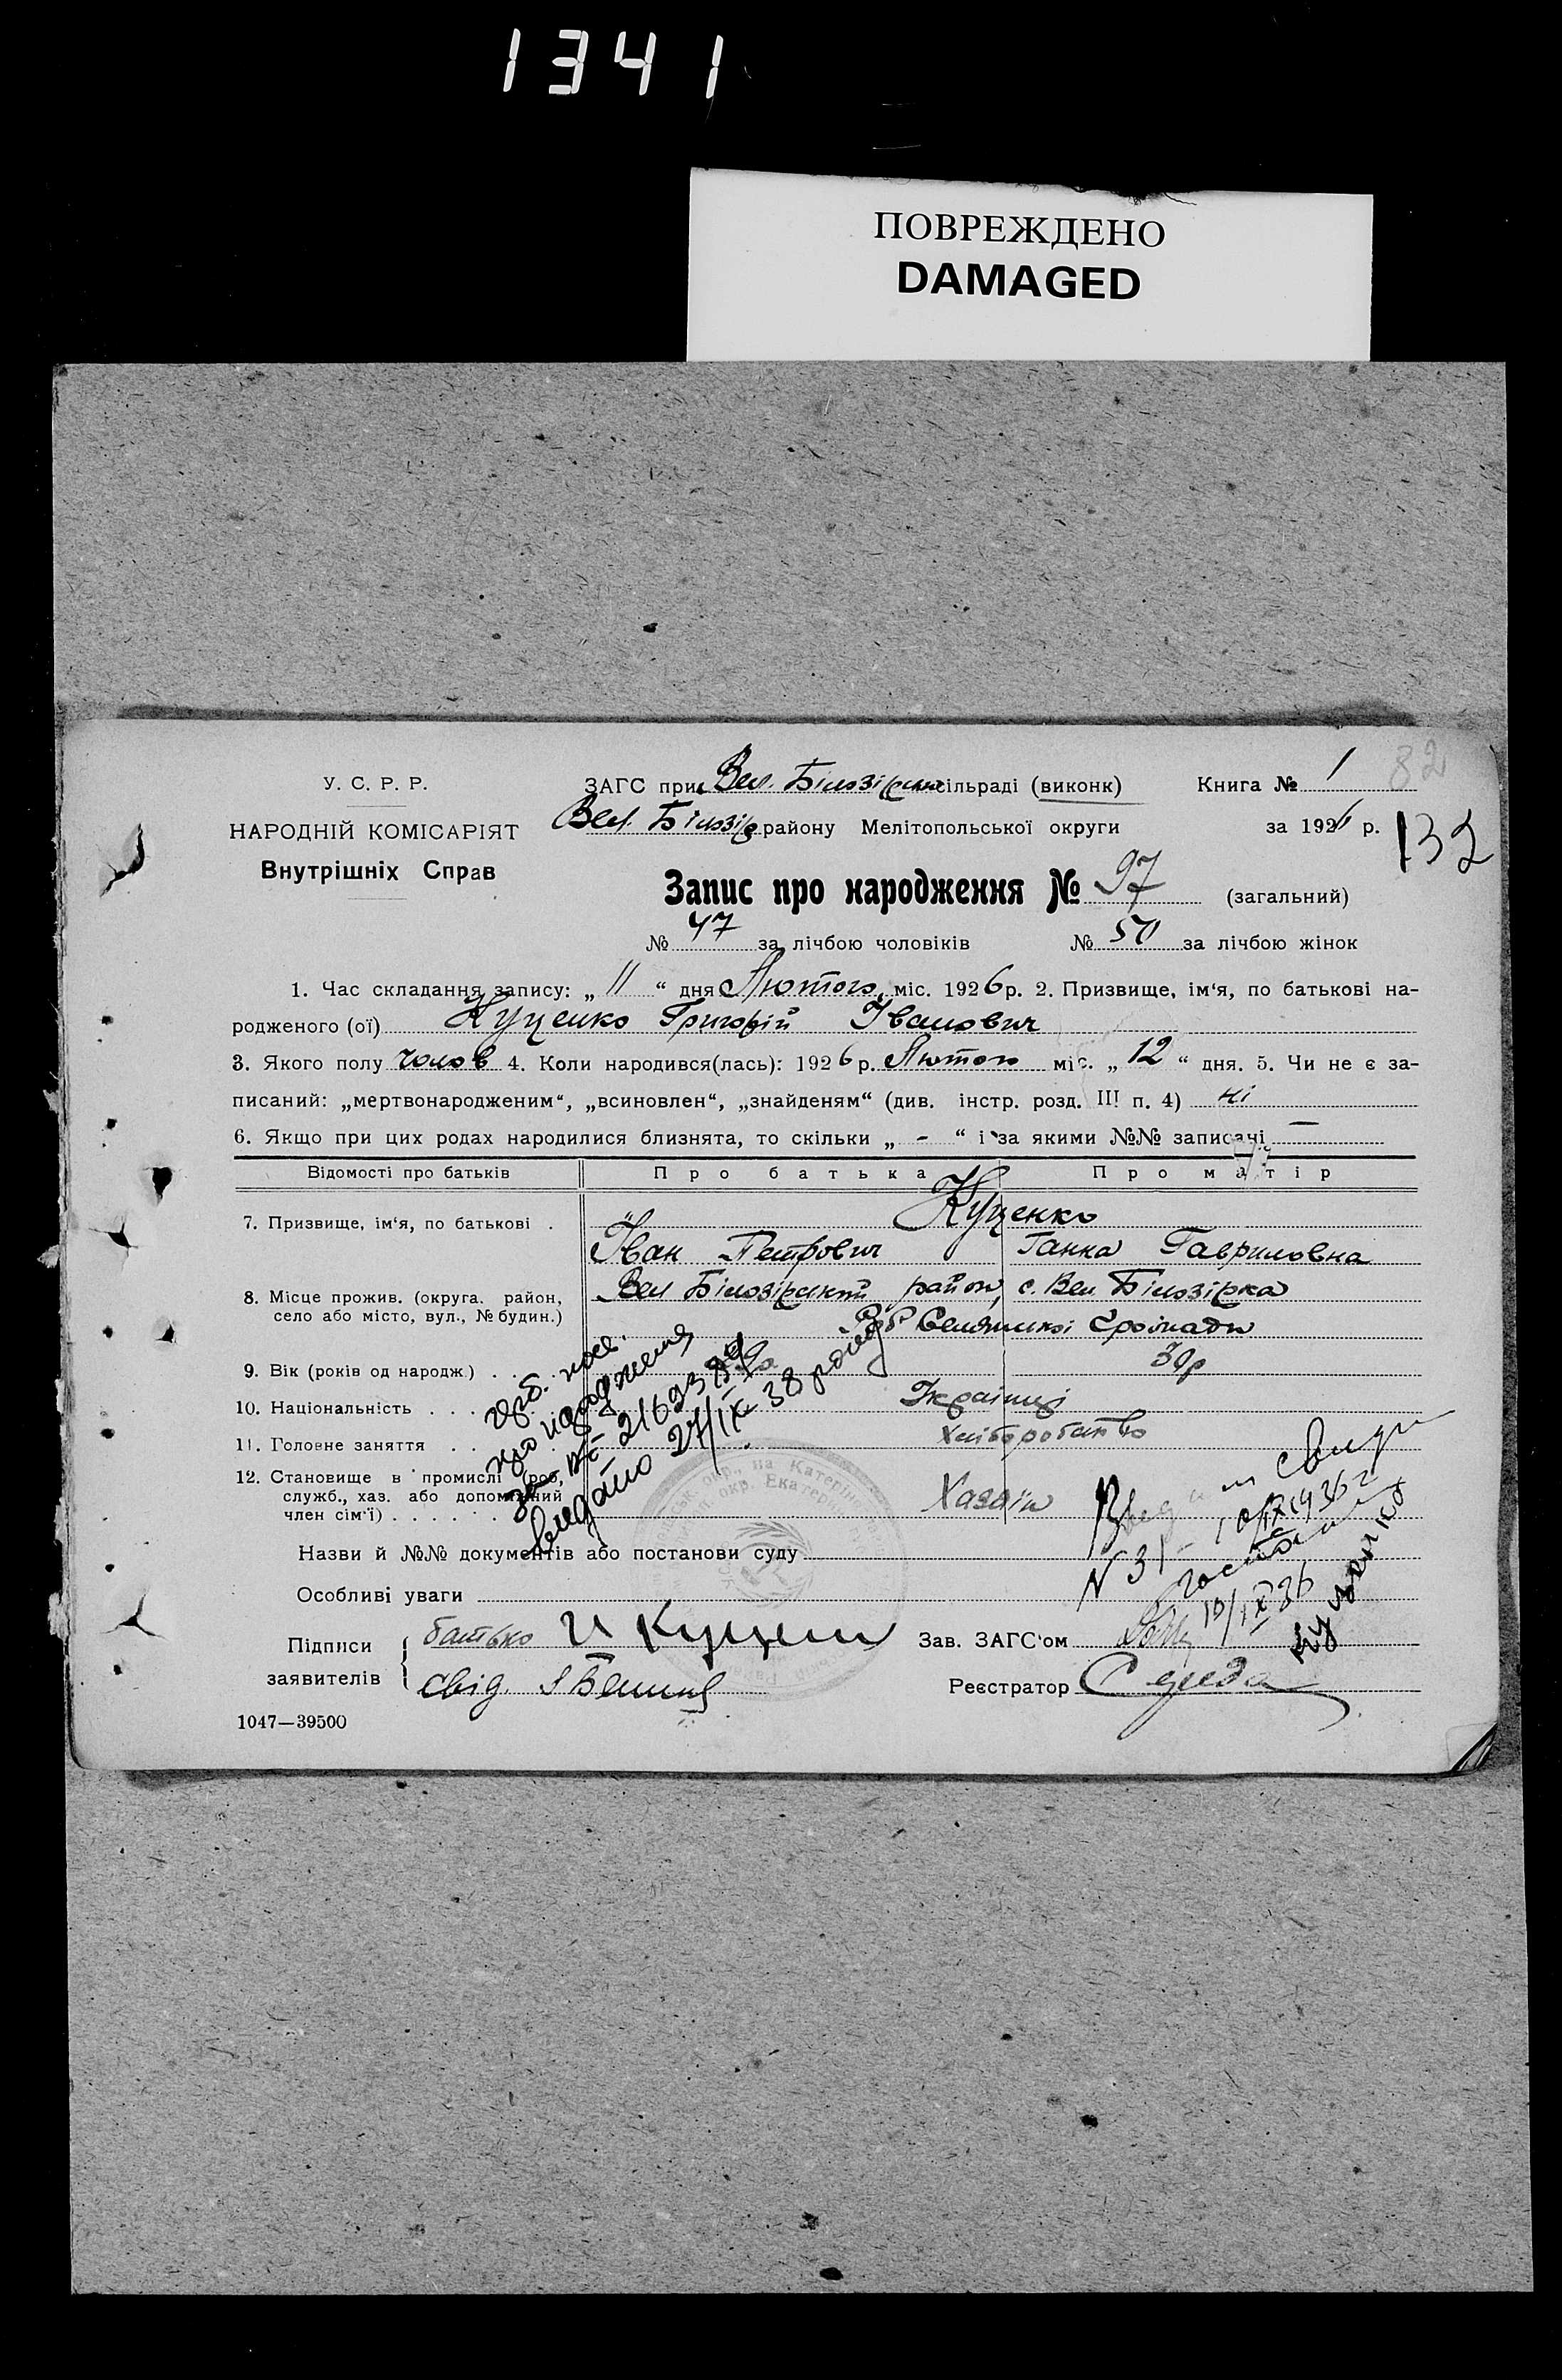 1341
ПОВРЕЖДЕНО
DAMAGED
82
У. С. Р. Р.
ЗАГС при Вел. Білозірськ сільраді (виконк)
Книга № 1
НАРОДНІЙ КОМІСАРІЯТ
Вел. Білозір. району Мелітопольської округи
за 1926 р.
132
Внутрішніх Справ
Запис про народження № 97 (загальний)
№ 47 за лічбою чоловіків № 50 за лічбою жінок
1. Час складання запису: „ 11 “ дня Лютого міс. 1926 р. 2. Призвище, ім‘я, по батькові на-
родженого (ої) Куценко Григорій Іванович
3. Якого полу чолов 4. Коли народився(лась): 1926 р. Лютого міс. „ 12 “ дня. 5. Чи не є за-
писаний: „мертвонародженим“, „всиновлен“, „знайденям“ (див. інстр. розд. III п. 4) ні
6. Якщо при цих родах народилися близнята, то скільки „ - “ і за якими №№ записані —
Відомості про батьків
Про батька
Про матір
7. Призвище, ім‘я, по батькові .
Куценко
Іван Петрович
Ганна Гавриловна
8. Місце прожив. (округа. район,
село або місто, вул., № будин.)
Вел Білозірський район, с. Вел. Білозірка
Громади
9. Вік (років од народж.) . .
30р
10. Національність . . .
Українці
11. Головне заняття . . .
Хліборобство
12. Становище в промислі (роб,
служб., хаз. або допоміжний
член сім‘ї) . . . . . .
Хазяїн
про народження
за №
видано 27/IX 38 року
N 31
10/IX 1936 г
10/IX 36
Назви й №№ документів або постанови суду
Особливі уваги
Підписи
заявителів
батько И Куценко
свід.
Зав. ЗАГС‘ом
Реєстратор
1047—39500